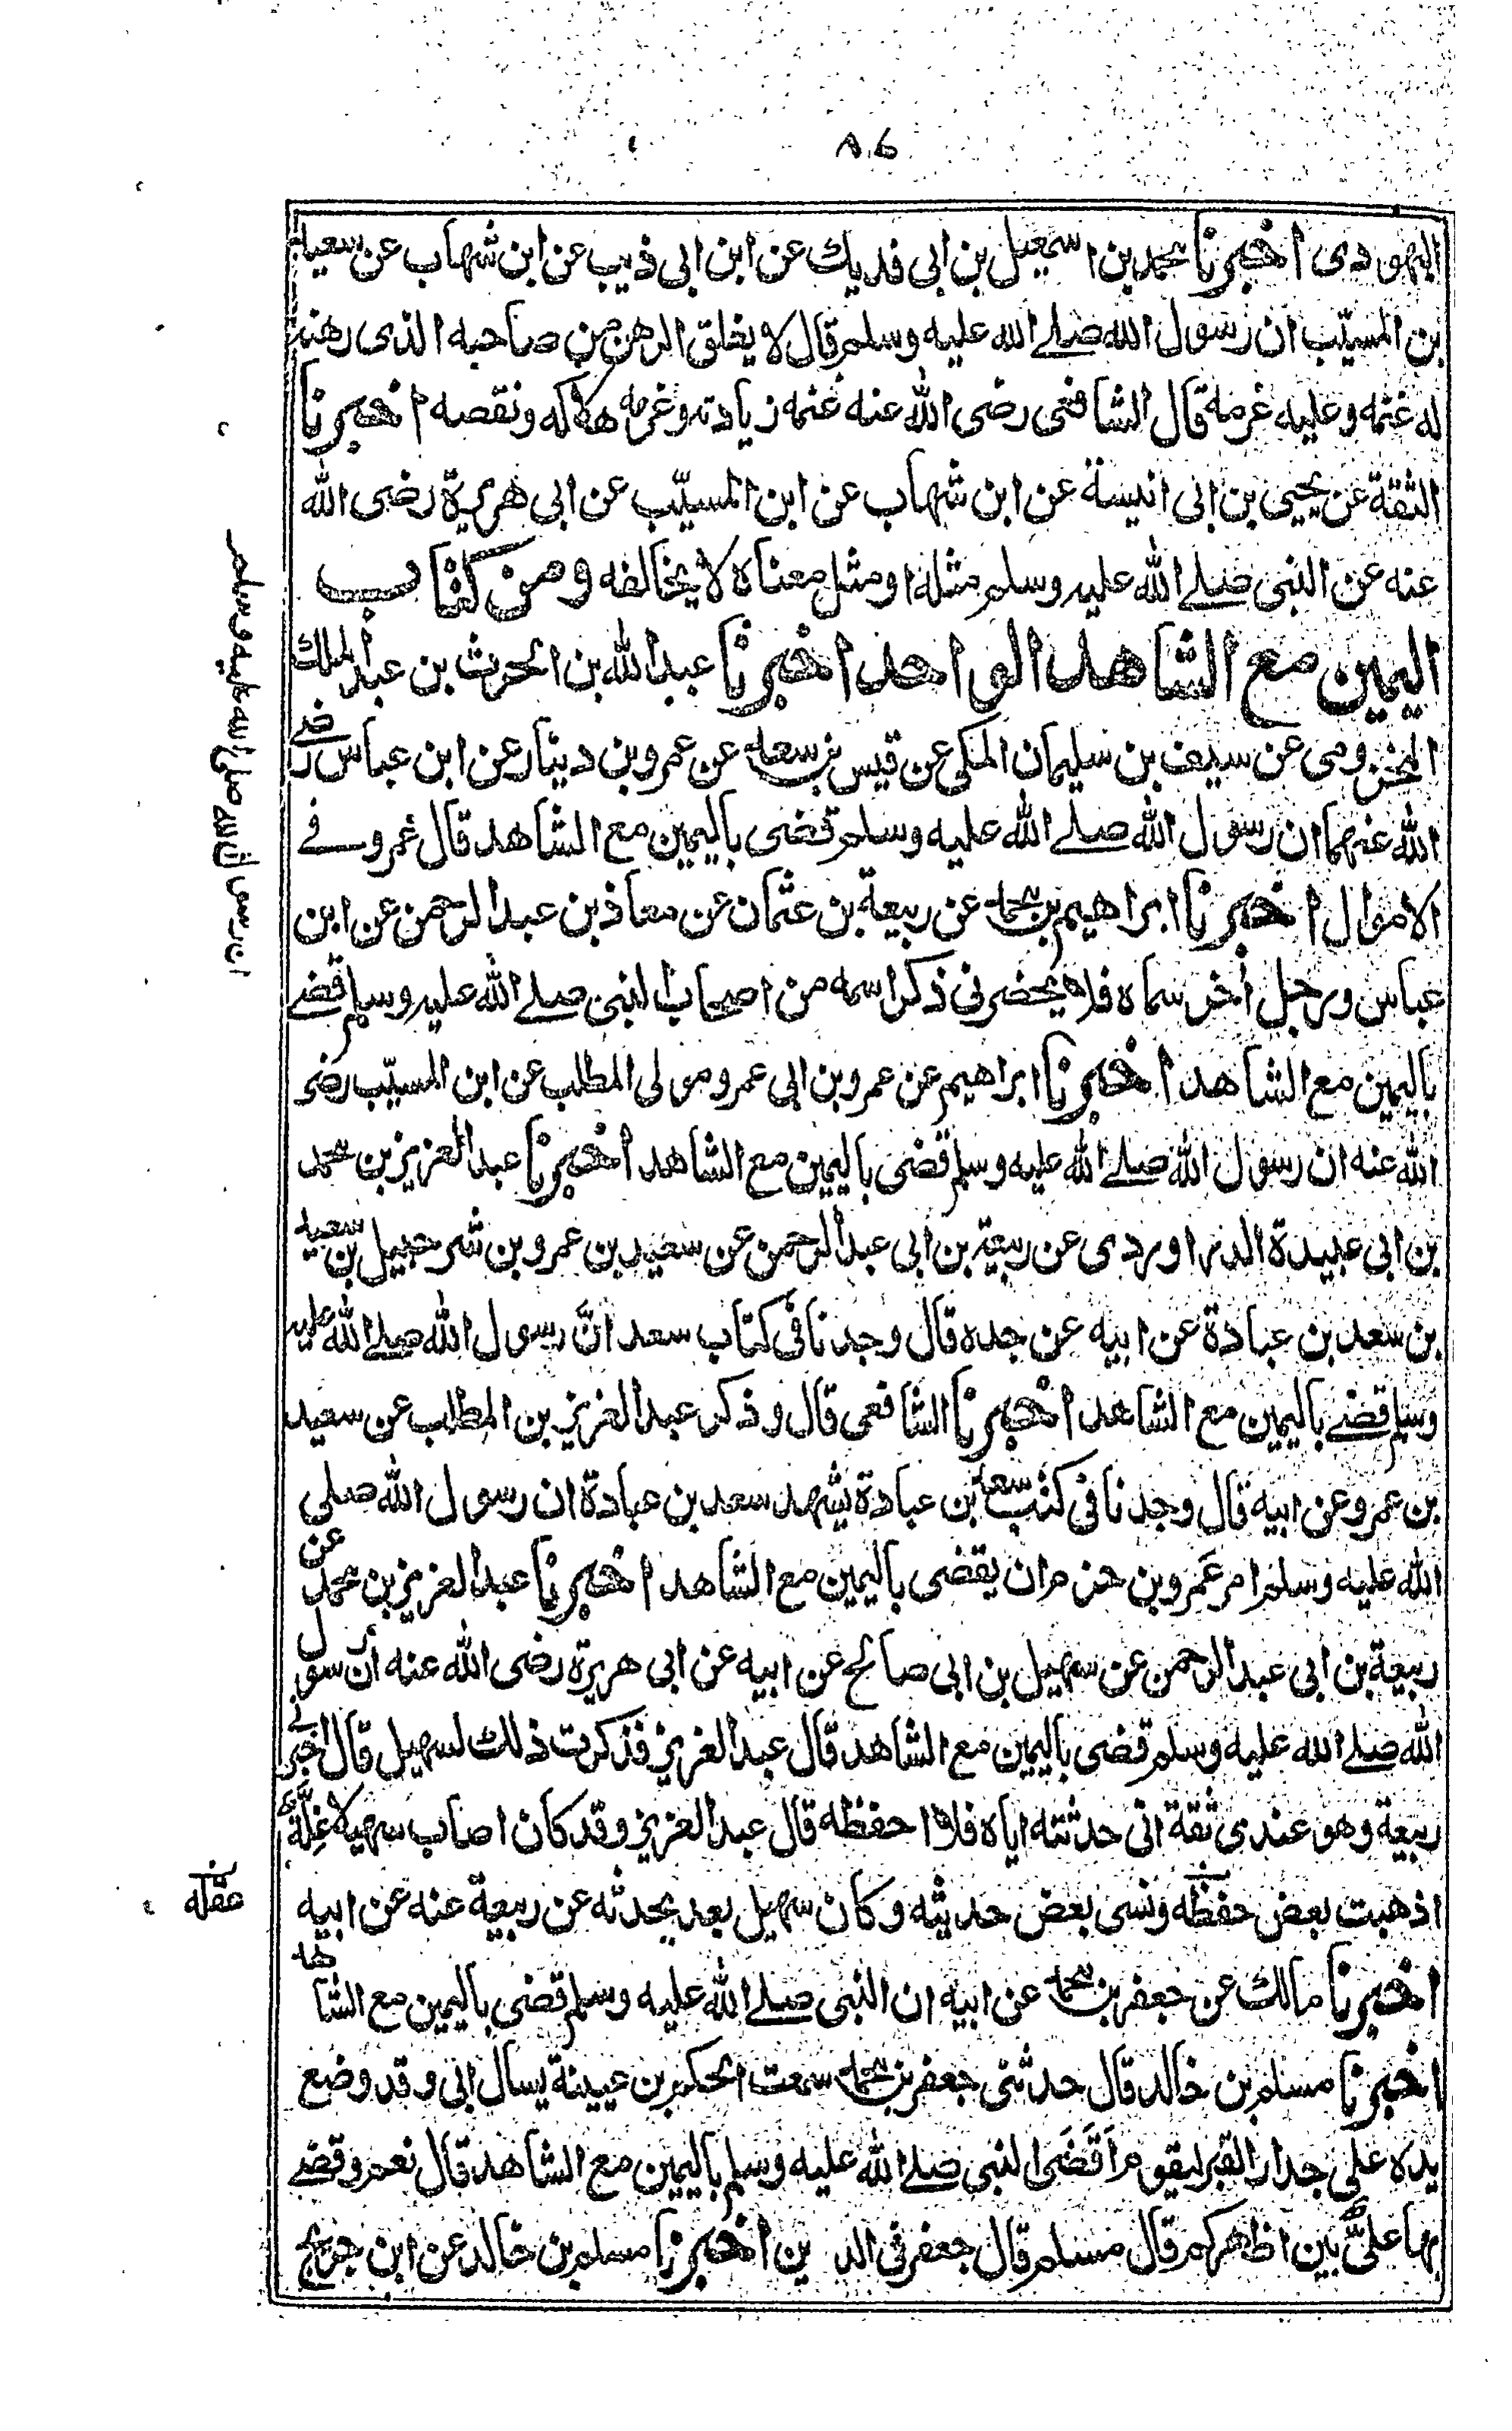 ٨٦
اليهودى اخبرنا محمد بن اسمعيل بن ابى فديك عن ابن ابى ذيب عن ابن شهاب عن سعيد
بن المسيّب ان رسول الله صلے الله عليه وسلم قال لا يغلق الرهن من صاحبه الذى رهنه
له غنمه وعليه غرمه قال الشافعى رضى الله عنه غنمه زيادته وغرمه هلاكه ونقصه اخبرنا
الثقة عن يحيى بن ابى انيسة عن ابن شهاب عن ابن المسيّب عن ابى هريرة رضى الله
عنه عن النبى صلے الله عليه وسلم مثله او مثل معناه لا يخالفه ومن كتاب
اليمين مع الشاهد الواحد اخبرنا عبد الله بن الحرث بن عبد الملك
المخزومى عن سيف بن سليمان المكى عن قيس بن سعد عن عمرو بن دينار عن ابن عباس رضے
الله عنهما ان رسول الله صلے الله عليه وسلم قضى باليمين مع الشاهد قال عمرو فے
الاموال اخبرنا ابراهيم بن محمد عن ربيعة بن عثمان عن معاذ بن عبد الرحمن عن ابن
عباس ورجل أخر سماه فلا يحضرنى ذكر اسمه من اصحاب النبى صلے الله عليه وسلم قضے
باليمين مع الشاهد اخبرنا ابراهيم عن عمرو بن ابى عمرو مولى المطلب عن ابن المسيّب رضى
الله عنه ان رسول الله صلے الله عليه وسلم قضى باليمين مع الشاهد اخبرنا عبد العزيز بن محمد
بن ابى عبيدة الدراوردى عن ربيعة بن ابى عبد الرحمن عن سعيد بن عمرو بن شرحبيل بن سعيد
بن سعد بن عبادة عن ابيه عن جده قال وجدنا فى كتاب سعد انّ رسول الله صلے الله عليه
وسلم قضے باليمين مع الشاهد اخبرنا الشافعى قال وذكر عبد العزيز بن المطلب عن سعيد
بن عمرو عن ابيه قال وجدنا فى كتب سعد بن عبادة يشهد سعد بن عبادة ان رسول الله صلى
الله عليه وسلم امر عَمرو بن حزم ان يقضى باليمين مع الشاهد اخبرنا عبد العزيز بن محمد عن
ربيعة بن ابى عبد الرحمن عن سهيل بن ابى صالح عن ابيه عن ابى هريرة رضى الله عنه ان رسول
الله صلے الله عليه وسلم قضى باليمين مع الشاهد قال عبد العزيز فذكرت ذلك لسهيل قال اخبرنے
ربيعة وهو عندى ثقة انى حدثته اياه فلا احفظه قال عبد العزيز وقد كان اصاب سهيلا عِلَّة
اذهبت بعض حفظه ونسى بعض حديثه وكان سهيل بعد يحدثه عن ربيعة عنه عن ابيه
اخبرنا مالك عن جعفر بن محمد عن ابيه ان النبى صلے الله عليه وسلم قضى باليمين مع الشاهد
اخبرنا مسلم بن خالد قال حدثنى جعفر بن محمد سمعت الحكم بن عيينة يسال ابى وقد وضع
يده على جدار القبر ليقوم اَقَضَى النبى صلے الله عليه وسلم باليمين مع الشاهد قال نعم وقضے
بها علىٌّ بين اظهركم قال مسلم قال جعفر فى الدين اخبرنا مسلم بن خالد عن ابن جريج
ان رسول الله صلى الله عليه وسلم
عقله